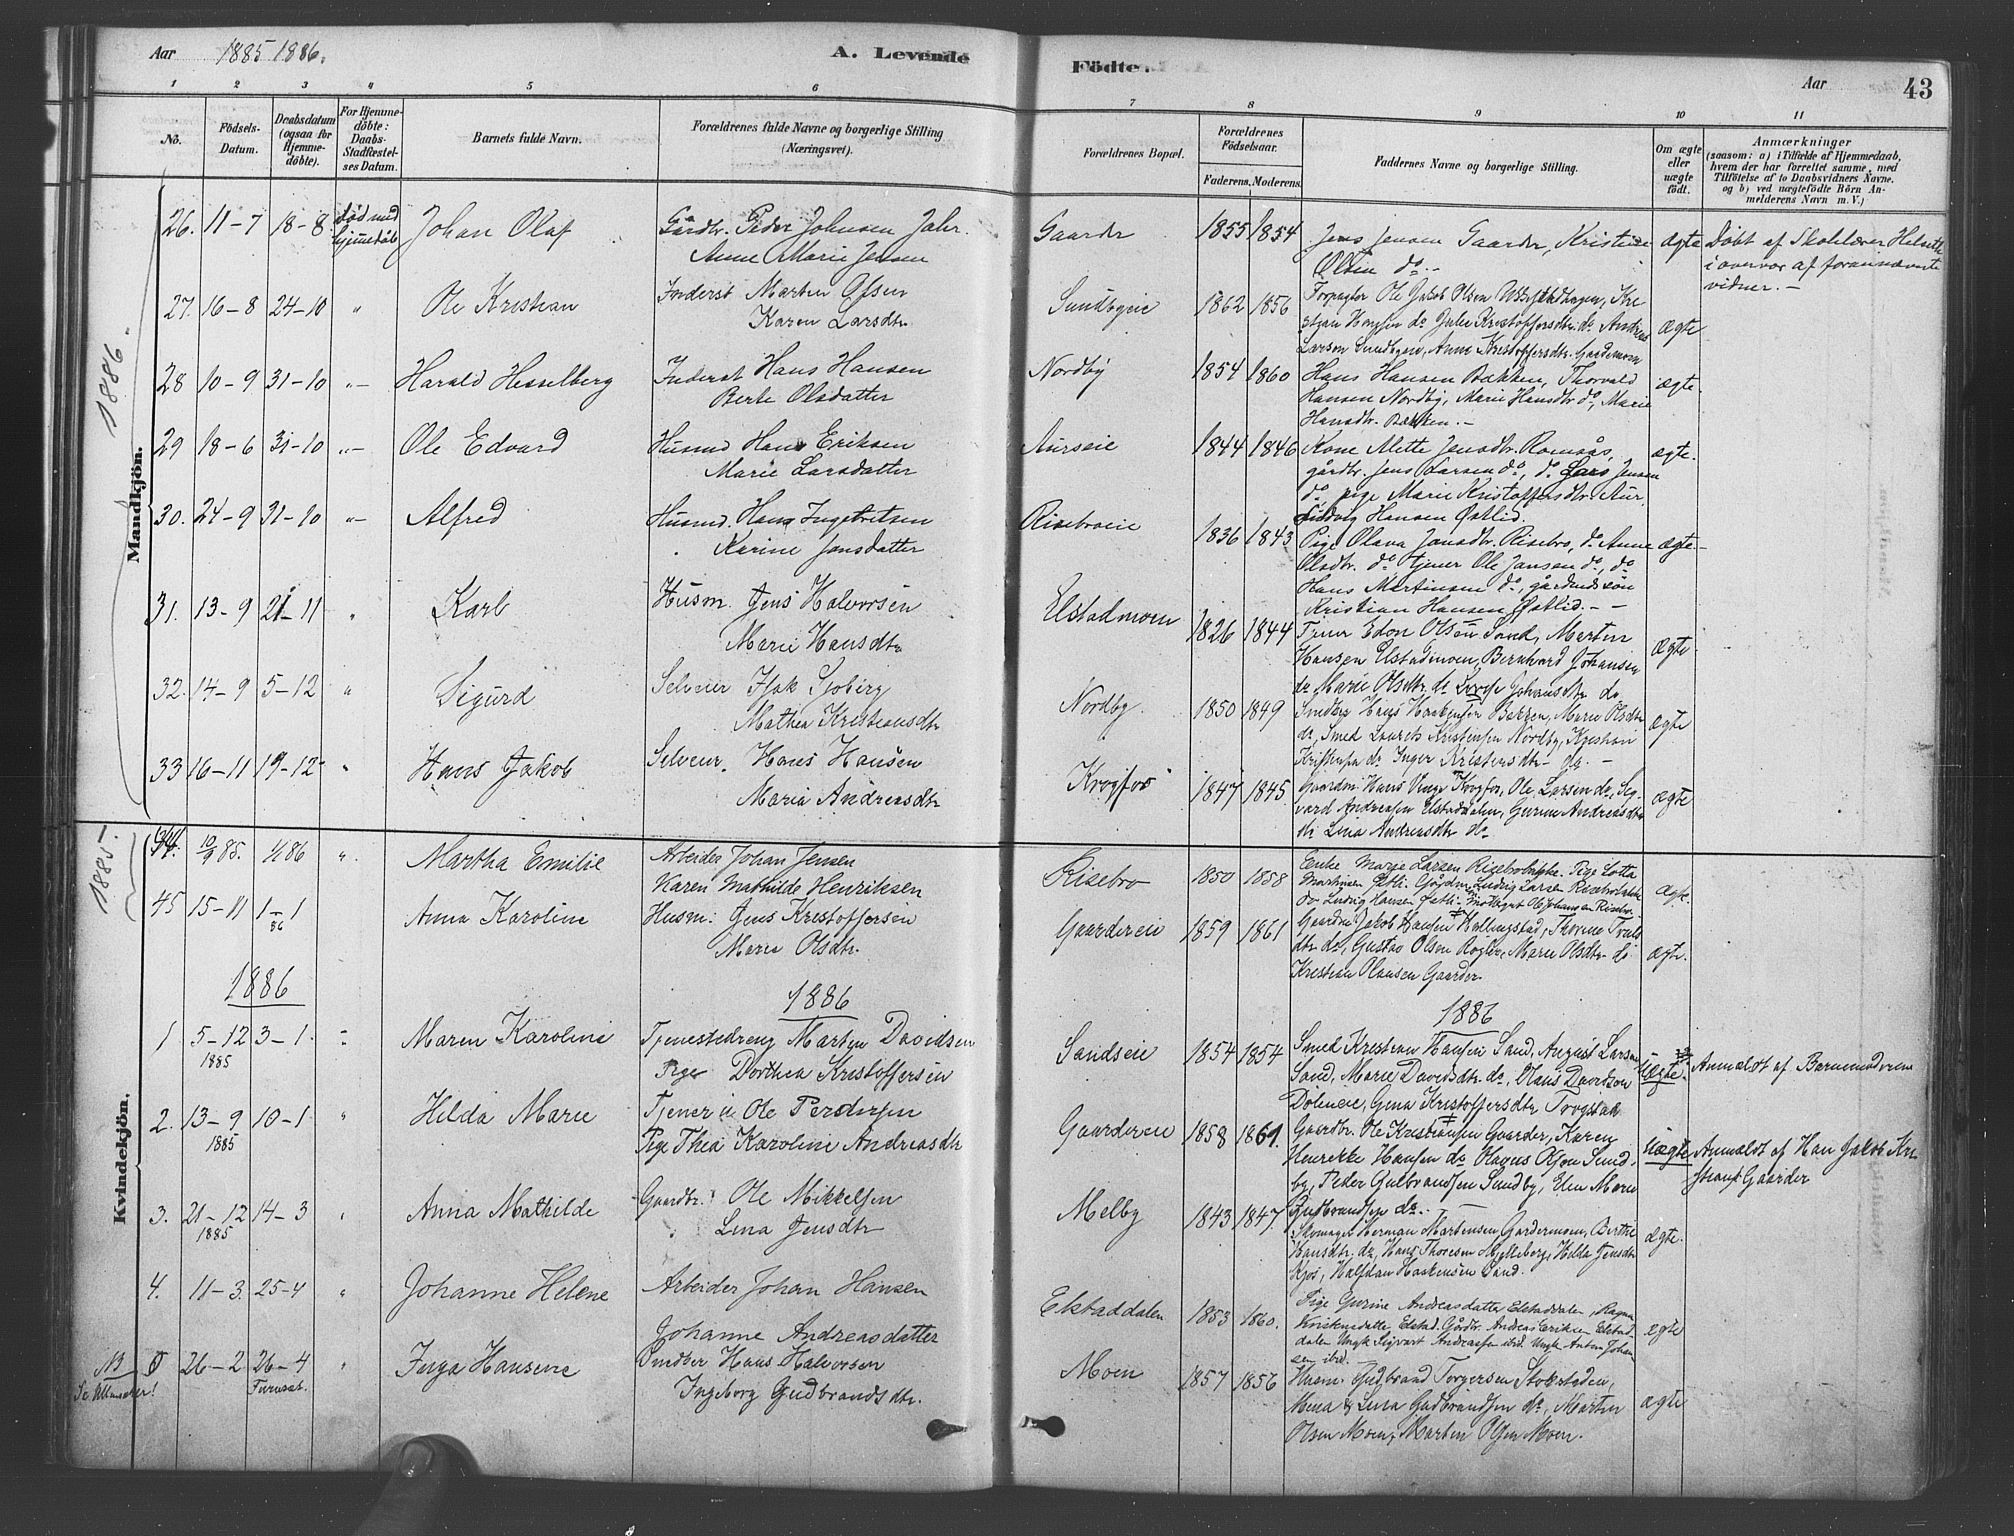 Aar 1885 1886.
A. Levende
Födte.
Aar
43
1 2 3 4 5 6 7 8 9 10 11
No.
Födsels-
Datum.
Daabsdatum
(ogsaa for
Hjemme-
döbte).
For Hjemme-
döbte:
Daabs-
Stadfæstel-
ses Datum.
Barnets fulde Navn.
Forældrenes fulde Navne og borgerlige Stilling
(Næringsvei).
Forældrenes Bopæl.
Forældrenes
Födselsaar.
Faderens. Moderens.
Faddernes Navne og borgerlige Stilling.
Om ægte
eller
uægte
födt.
Anmærkninger
(saasom: a) i Tilfælde af Hjemmedaab,
hvem der har forrettet samme, med
Tilföielse af to Daabsvidners Navne.
og b) ved uægtefödte Börn An-
melderens Navn m. V.)
1886.
Mandkjön.
26. 11-7 18-8 Johan Olaf Gårdbr. Peder Johnsen Jahr. Gaarder 1855 1854 Jens Jensen Gaarder, Kristine ægte Döbt af Skolelærer
Anne Marie Jensen Olsen do. i overvær af forannævnte
vidner. -
27. 16-8 24-10 " Ole Kristian Inderst Marten Olsen Sundbyeie 1862 1856 Ole Jakob Olsen
Karen Larsdtr. Hansen do Julie Kristoffersdtr. do Andreas ægte
Larsen Sundbyeie, Anne Kristoffersdtr. Gardemoen
28 10-9 31-10 "- Harald Hesselberg Inderst Hans Hansen Nordby 1854 1860 Hans Hansen Bakken, Thorvald ægte.
Berte Olsdatter Hansen Nordby, Marie Hansdtr do, Marie
Hansdtr. Bakken. -
29 18-6 31-10 "- Ole Edvard Husmd Hans Eriksen Aurseie 1844 1846 Kone Mette Jensdtr. Romsaas, ægte.
Marie Larsdatter gårdbr. Jens Larsen do, do Lars Jensen
do, pige Marie Kristoffersdtr. Aur
Ludvig Hansen Østlid.
30. 24-9 31-10 "- Alfred Husmd. Hans Ingebretsen Risebroeie 1836 1843 Pige Olava Jensdtr. Risebro, do Anne ægte-
Karine Jensdatter Olsdtr. do tjener Ole Jansen do, do
Hans Martinsen do, gårdmdssön
Kristian Hansen Østlid. - -
31. 13-9 21-11 " Karl Husm. Jens Halvorsen Elstadmoen 1826 1844 Olsen Sand, Marten
Marie Hansdtr Hansen Elstadmoen, Bernhard Johansen ægte
do, Marie Olsdtr. do Johansdtr do
32. 14-9 5-12 " Sigurd Selveier Isak Sjøberg Nordby 1850 1849 Hans Haakensen Bakken, Marie Olsdtr
Mathea Kristiansdtr do, Smed Laurits Kristensen Nordby, Kristian ægte
do Inger Kristensdtr do. -
33 16-11 19-12 " Hans Jakob Selveier, Hans Hansen Krogfos 1847 1845 Gaardm. Hans Krogfos, Ole Larsen do, Sig-
Maria Andreasdtr vard Andreasen Elstaddalen, Gurine Andreasdtr ægte
do Lina Andreasdtr do
1885.
44. 10/9 85. 1/1 86 ". Martha Emilie Arbeider Johan Jensen Risebro 1850 1858 Enke Marie Larsen
Karen Mathilde Henriksen Ludvig Larsen ægte.
do Ludvig Hansen Ole Johansen Risebro.
45 15-11 1-1 86 Anna Karoline Husm: Jens Kristoffersen Gaardereie 1859 1861 Gaardm Jakob Hansen Hellingstad, Thorine
Marie Olsdtr. dtr do, Gustav Olsen Rogler, Marie Olsdtr do ægte.
Kristian Olausen Gaarder
1886 1886 1886
Kvindekjön.
1 5-12 1885 3-1 Maren Karoline Tjenestedreng Marten Davidsen Sandseie 1854 1854 Smed Kristian Hansen Sand, August Larsen uægte. Anmeldt af Barnemoderen
Pige Dorthea Kristoffersen Sand, Marie Davidsdtr do, Olaus Davidsen
Döleneie, Gina Kristoffersdtr Trogstad
2. 13-9 1885 10-1 " Hilda Marie Tjener Ole Pedersen Gaardereie 1858 1861. Gaardbr. Ole Kristiansen Gaarder, Karen uægte Anmeldt af Han Jakob Kri-
Pige Thea Karoline Andreasdtr Henrekke Hansen do Olavus Olsen Sund- stians Gaarder
by, Peder Gulbrandsen Sundby, Elen Marie
Gudbrandsen do. -
3. 21-12 1885 14-3 Anna Mathilde Gaardbr. Ole Mikkelsen Melby 1843 1847. Skomager Herman Martensen Gardermoen, Berthe ægte.
Lina Jensdtr Hansdtr. do, Hans Thoresen Mylleberg, Hilda Jensdtr
Kjos, Halfdan Haakensen Sand.
4. 11-3. 25-4 " Johanne Helene Arbeider Johan Hansen Elstaddalen 1853 1860. Pige Gurine Andreasdatter Elstaddalen, Ragna
Johanne Andreasdatter Elstad. Gårdbr. Andreas Eriksen Elstad- ægte
dalen Ungk Sigvart Andreassen ibid. Ungk Anton Johan-
sen ibid.
NB 5 26-2 26-4 " Inga Hansine Hans Halvorsen Moen 1857 1856 Husm. Gudbrand Torgersen Stokstaden,
Furuset. Ingeborg Gudbrandsdtr. Mina & Lina Gudbrandsen do, Marten ægte
Olsen Moen, Marten Olsen Moen.